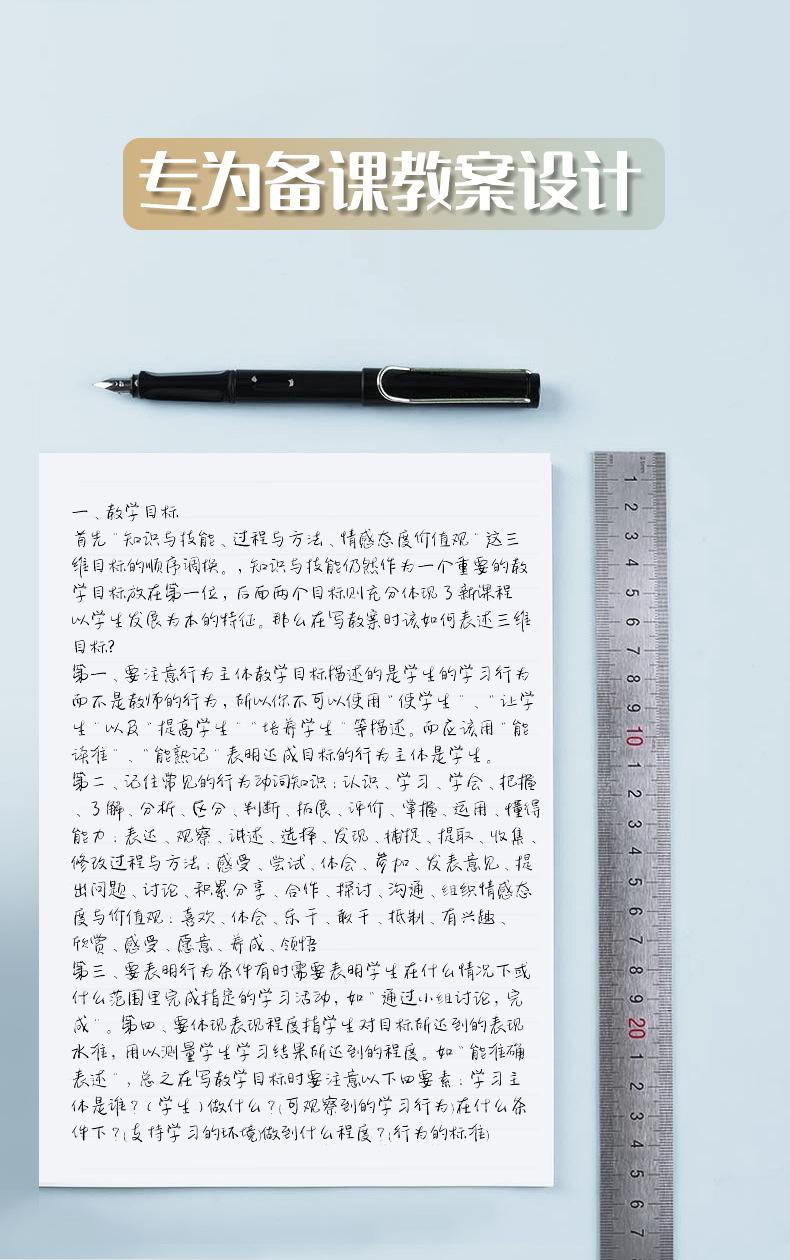 专为备课教案设计
一、教学目标
首先“知识与技能、过程与方法、情感态度价值观”这三
维目标的顺序调换。，知识与技能仍然作为一个重要的教
学目标放在第一位，后面两个目标则充分体现了新课程
以学生发展为本的特征。那么在写教案时该如何表述三维
目标？
第一、要注意行为主体教学目标描述的是学生的学习行为
而不是教师的行为，所以你不可以使用“使学生”、“让学
生”以及“提高学生”“培养学生”等描述。而应该用“能
读准”、“能熟记”表明达成目标的行为主体是学生。
第二、记住常见的行为动词知识：认识、学习、学会、把握
、了解、分析、区分、判断、拓展、评价、掌握、运用、懂得
能力：表达、观察、讲述、选择、发现、捕捉、提取、收集、
修改过程与方法：感受、尝试、体会、参加、发表意见、提
出问题、讨论、积累分享、合作、探讨、沟通、组织情感态
度与价值观：喜欢、体会、乐于、敢于、抵制、有兴趣、
欣赏、感受、愿意、养成、领悟
第三、要表明行为条件有时需要表明学生在什么情况下或
什么范围里完成指定的学习活动，如“通过小组讨论，完
成”。第四、要体现表现程度指学生对目标所达到的表现
水准，用以测量学生学习结果所达到的程度。如“能准确
表述”，总之在写教学目标时要注意以下四要素：学习主
体是谁？（学生）做什么？（可观察到的学习行为）在什么条
件下？（支持学习的环境）做到什么程度？（行为的标准）
1
2
3
4
5
6
7
8
9
10
1
2
3
4
5
6
7
8
9
20
1
2
3
4
5
6
7